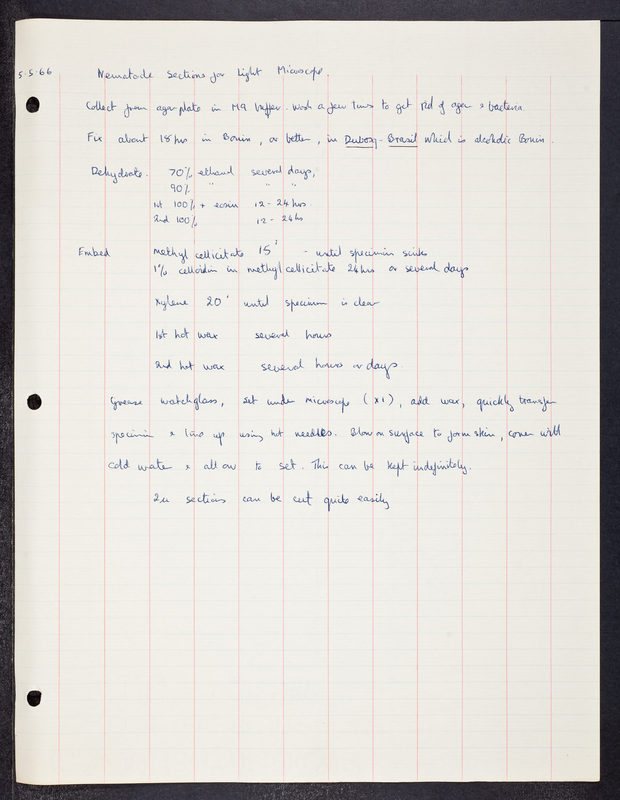 5.5.66 Nematode Sections for Light Microscope.
Collect from agar plate in M9 buffer. Wash a few times to get rid of agar & bacteria.
Fix about 18 hrs in Bouin, or better, in Duboscq-Brasil which is alcoholic Bouin.
Dehydrate. 70% ethanol several days,
90% " " "
1st 100% + eosin 12-24 hrs.
2nd 100% 12-24 hs
Embed methyl cellicitate 15' - until specimen sinks
1% celloidin in methyl cellicitate 24 hrs or several days
Xylene 20' until specimen is clear
1st hot wax several hours
2nd hot wax several hours or days.
Grease watchglass, set under microscope (x1), add wax, quickly transfer
specimen & line up using hot needles. Blow on surface to form skin, cover with
cold water & allow to set. This can be kept indefinitely.
2µ sections can be cut quite easily